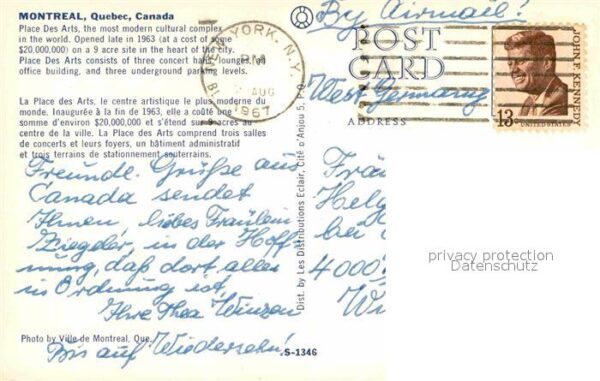 MONTREAL, Quebec, Canada
Place Des Arts, the most modern cultural complex
in the world. Opened late in 1963 (at a cost of some
$20,000,000) on a 9 acre site in the heart of the city.
Place Des Arts consists of three concert halls, lounges, an
office building, and three underground parking levels.
La Place des Arts, le centre artistique le plus moderne du
monde. Inaugurée à la fin de 1963, elle a coûté une
somme d'environ $20,000,000 et s'étend sur 9 acres au
centre de la ville. La Place des Arts comprend trois salles
de concerts et leurs foyers, un bâtiment administratif
et trois terrains de stationnement souterrains.
Freundl. Grüße aus
Canada sendet
Ihnen, liebes Fräulein
Ziegler, in der Hoff-
nung, daß dort alles
in Ordnung ist,
Ihre Thea Winzen
Photo by Ville de Montreal, Que.
Bis auf Wiedersehn!
S-1346
Dist. by Les Distributions Eclair, Cité d'Anjou 5, P.Q.
NEW YORK, N.Y.
PM
AUG
1967
By Airmail!
POST
CARD
West Germany
ADDRESS
JOHN F. KENNEDY
13c
UNITED STATES
Fräu
Helg
bei
4000
privacy protection
Datenschutz